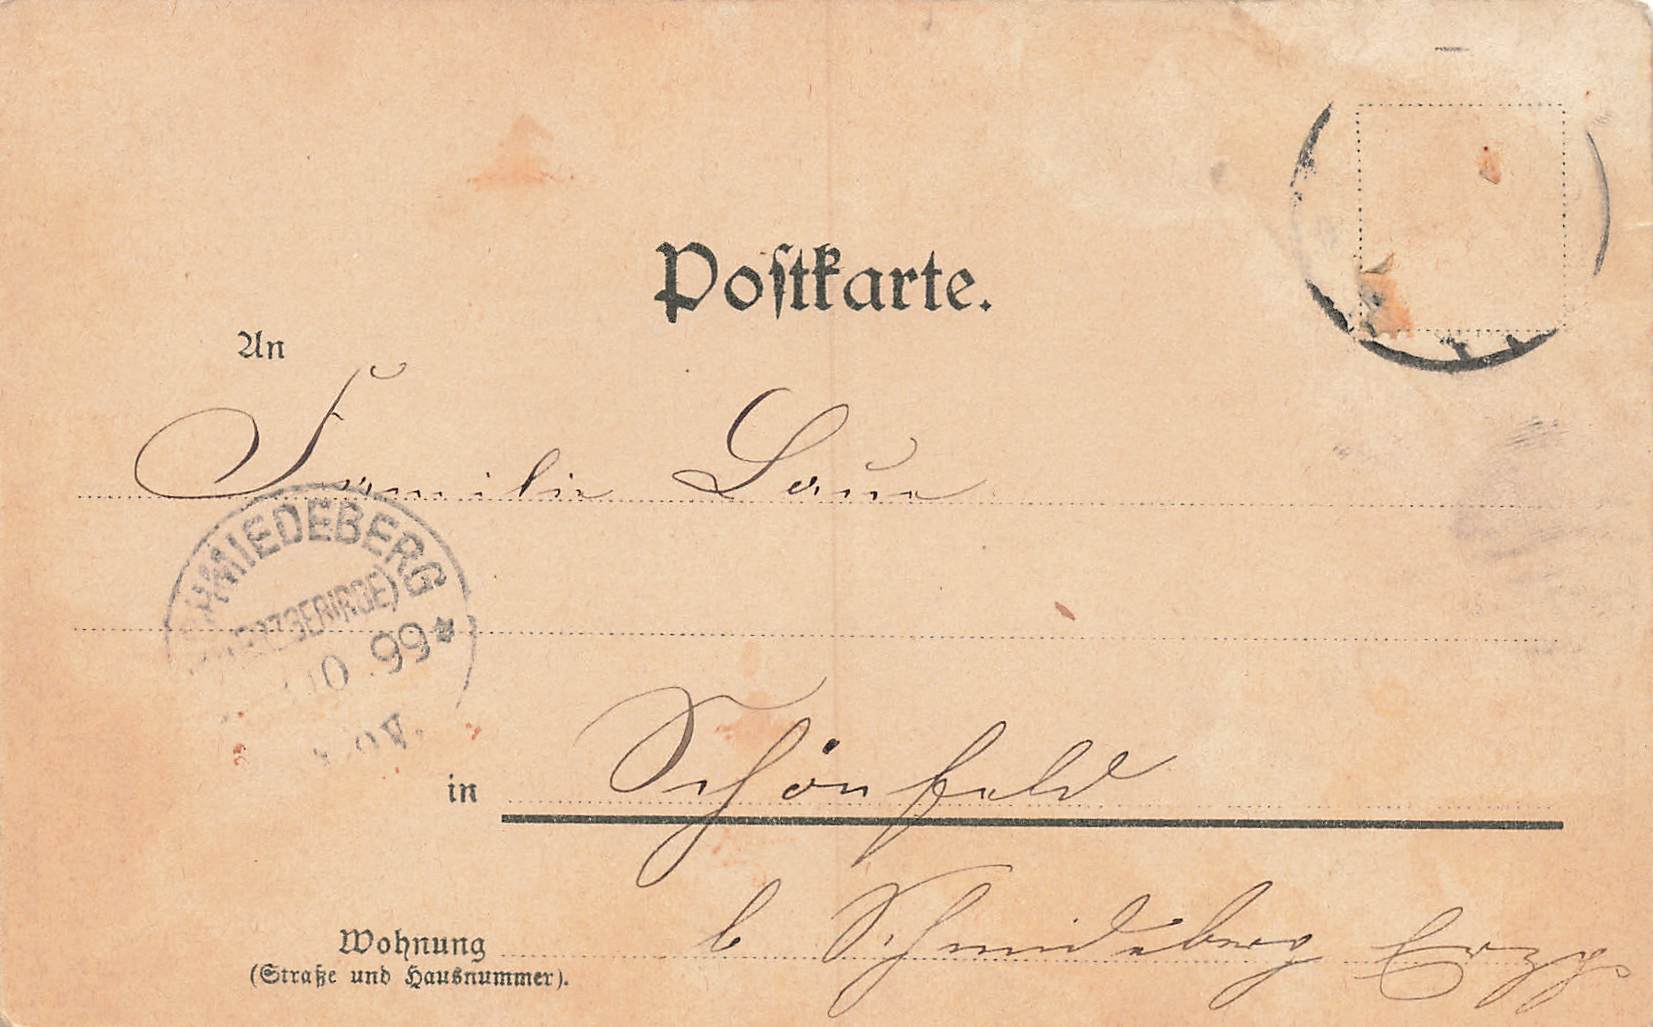 Postkarte.
An
Familie Laue
SCHMIEDEBERG
(ERZGEBIRGE)
10 . 99 *
V.
in Schönfeld
b Schmiedeberg Erzg.
Wohnung
(Straße und Hausnummer).